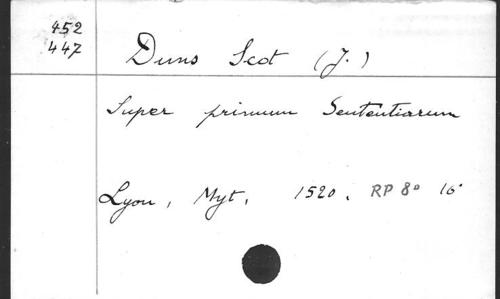 452
447
Duns Scot (J.)
Super primum Sententiarum
Lyon, Myt, 1520. RP 8° 16°